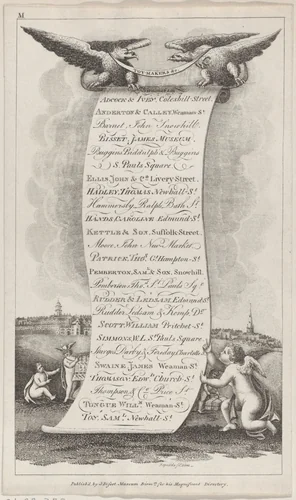 M
TOYMAKERS &c.
ADCOCK & IVES, Coleshill Street.
ANDERTON & CALLEY, Weaman St
Barnet John Snowhill.
BISSET JAMES MUSEUM
Buggins Biddulph & Buggins
S. Pauls Square
ELLIS JOHN & Co. Livery Street
HADLEY, THOMAS, Newhall St.
Hammersly, Ralph, Bath St
HANDS, CAROLINE Edmund St.
KETTLE & SON, Suffolk Street.
Moore John New Market
PATRICK, THOs. Gt. Hampton St.
PEMBERTON, SAMl. & SON, Snowhill.
Pemberton Thos. St. Pauls Sqr.
RYDDER & LEDSAM, Edmund St.
Rudder Ledsam & Kemp Do.
SCOTT WILLIAM Pritchet St.
SIMMONS, W. L. St. Pauls Square
Sturge Darby & Friday,
SWAINE JAMES Weaman St.
THOMASON Edwd. Church St.
Thompson & Co. Price St.
TONGUE WILLm. Weaman St.
TOY SAMl. Newhall St.
Publish'd by J. Bisset Museum Birmm. for his Magnificent Directory.